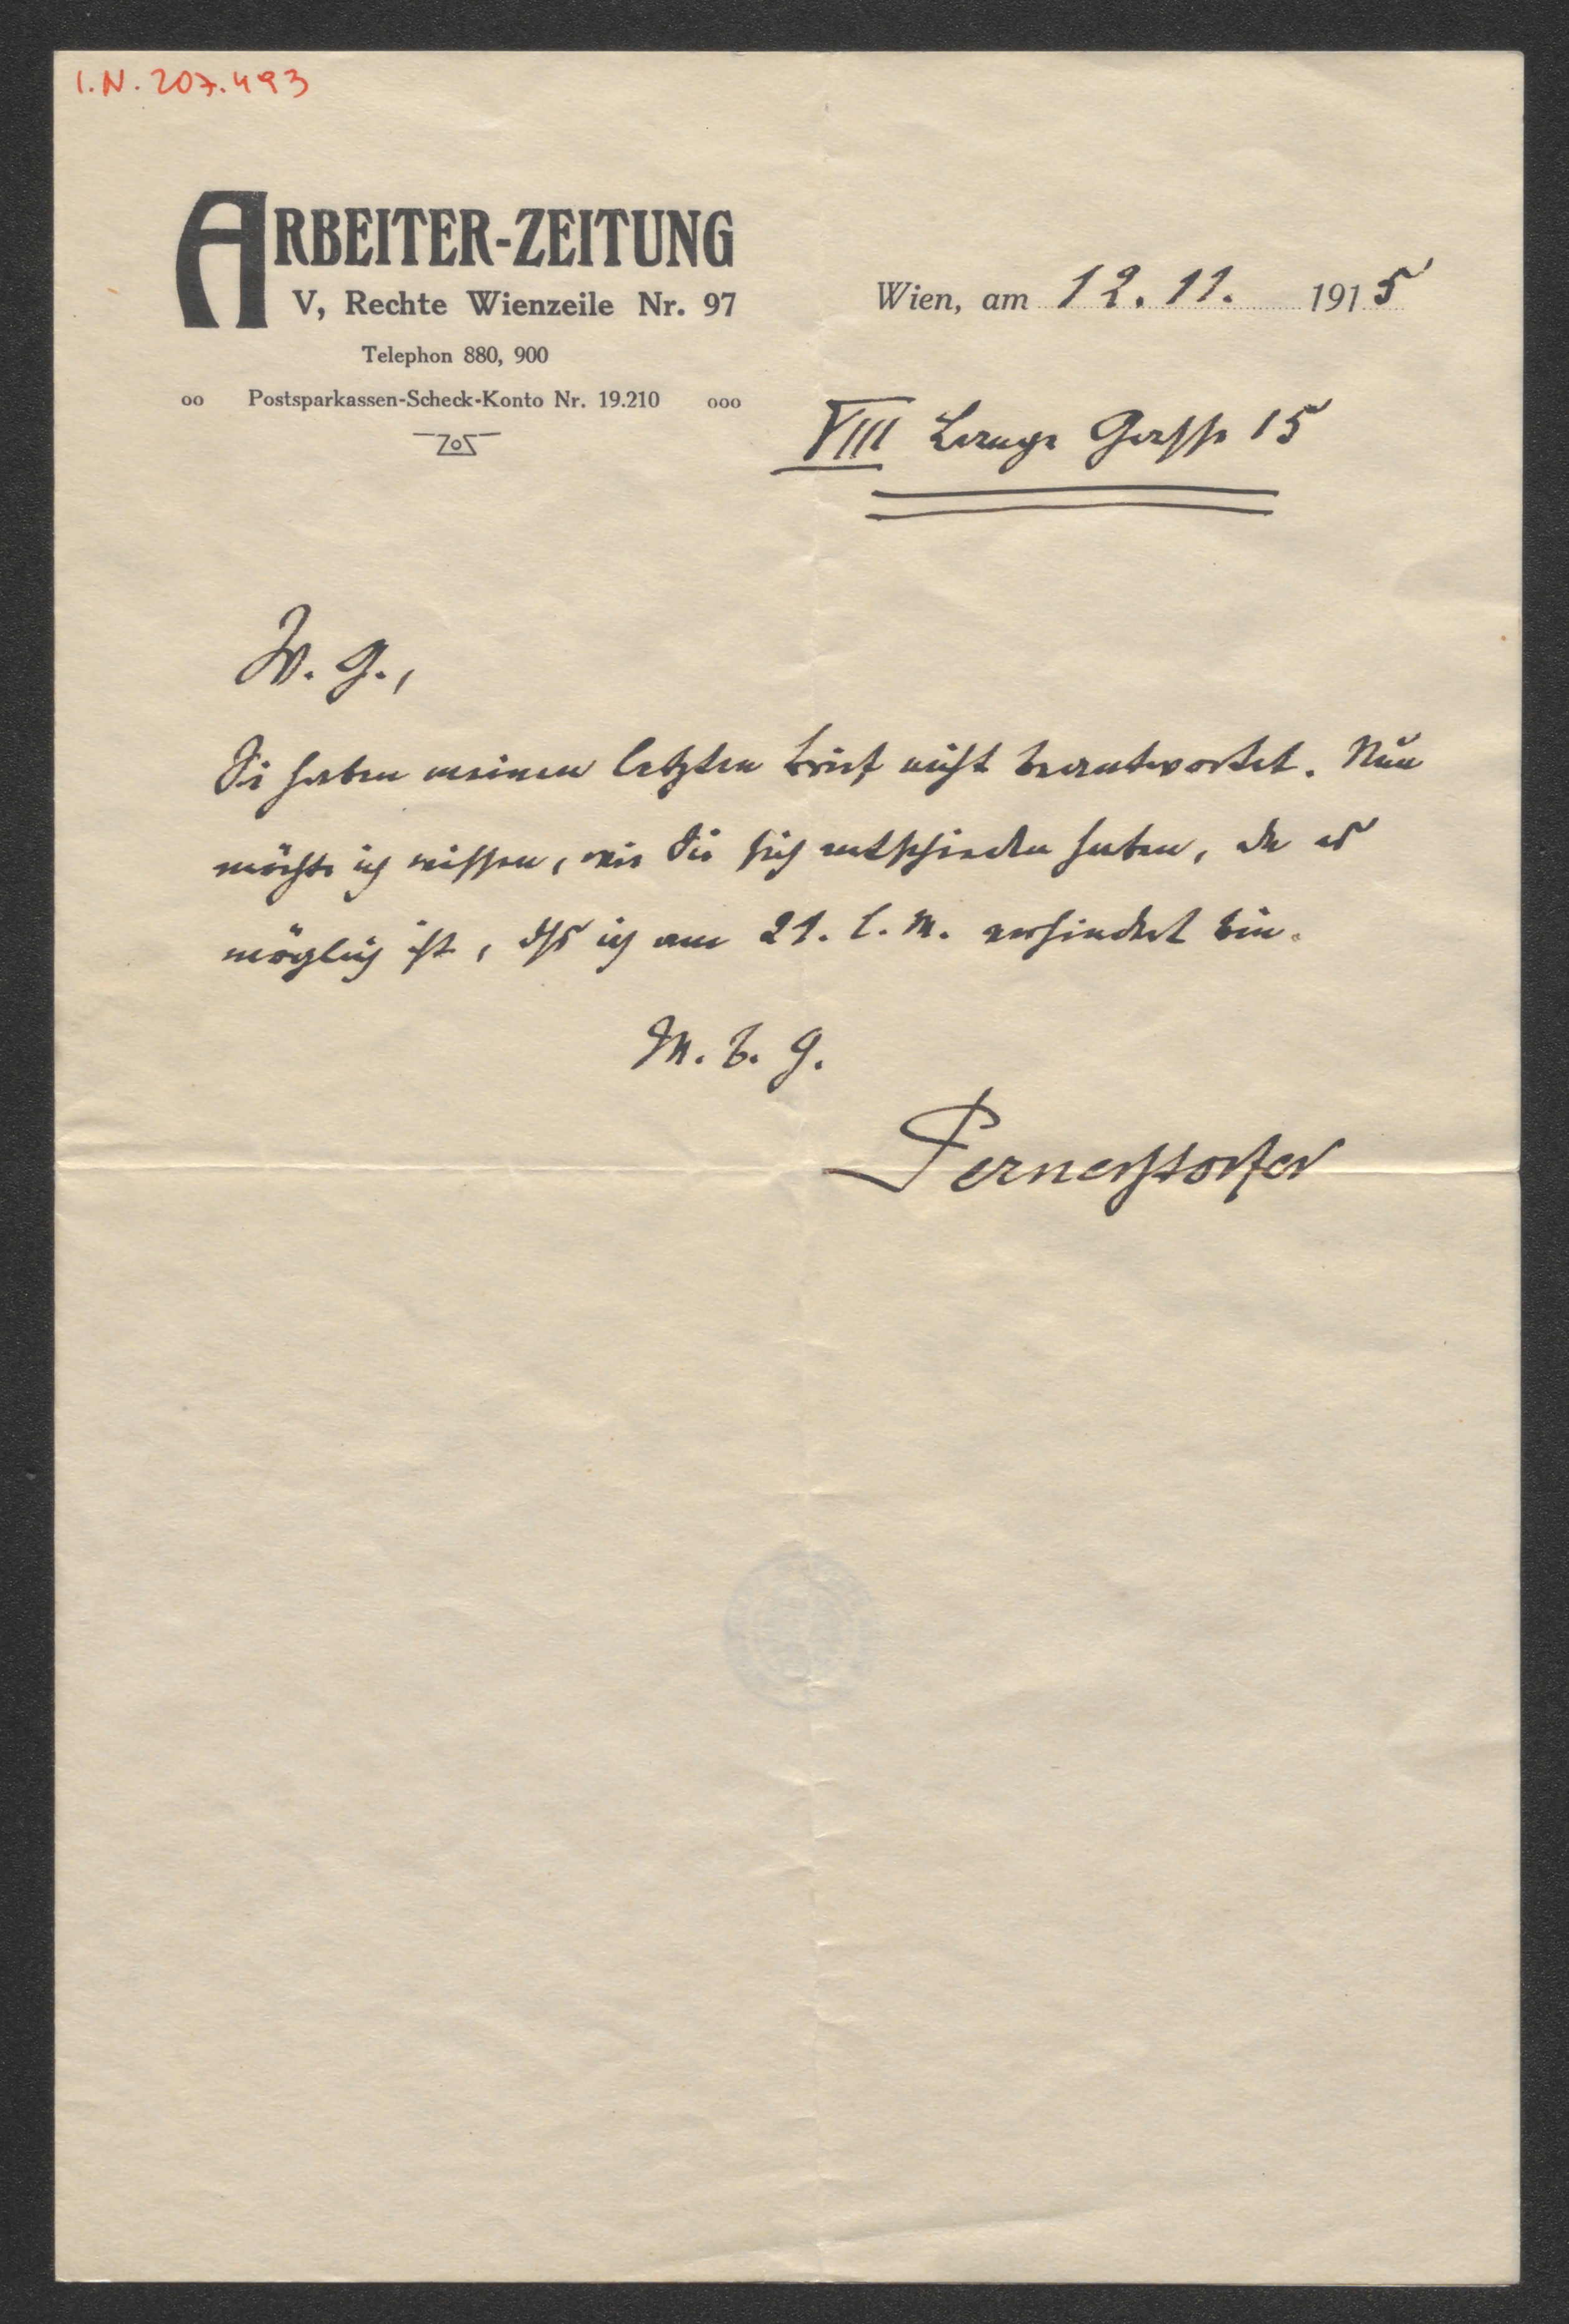 I.N. 207.493
ARBEITER-ZEITUNG
V, Rechte Wienzeile Nr. 97
Telephon 880, 900
oo Postsparkassen-Scheck-Konto Nr. 19.210 ooo
Wien, am 12. 11. 1915
VIII Lange Gasse 15
W. G.,
Sie haben meinen letzten Brief nicht beantwortet. Nun
möchte ich wissen, wie Sie sich entschieden haben, da es
möglich ist, dß ich am 21. l. M. verhindert bin.
M. b. G.
Pernerstorfer